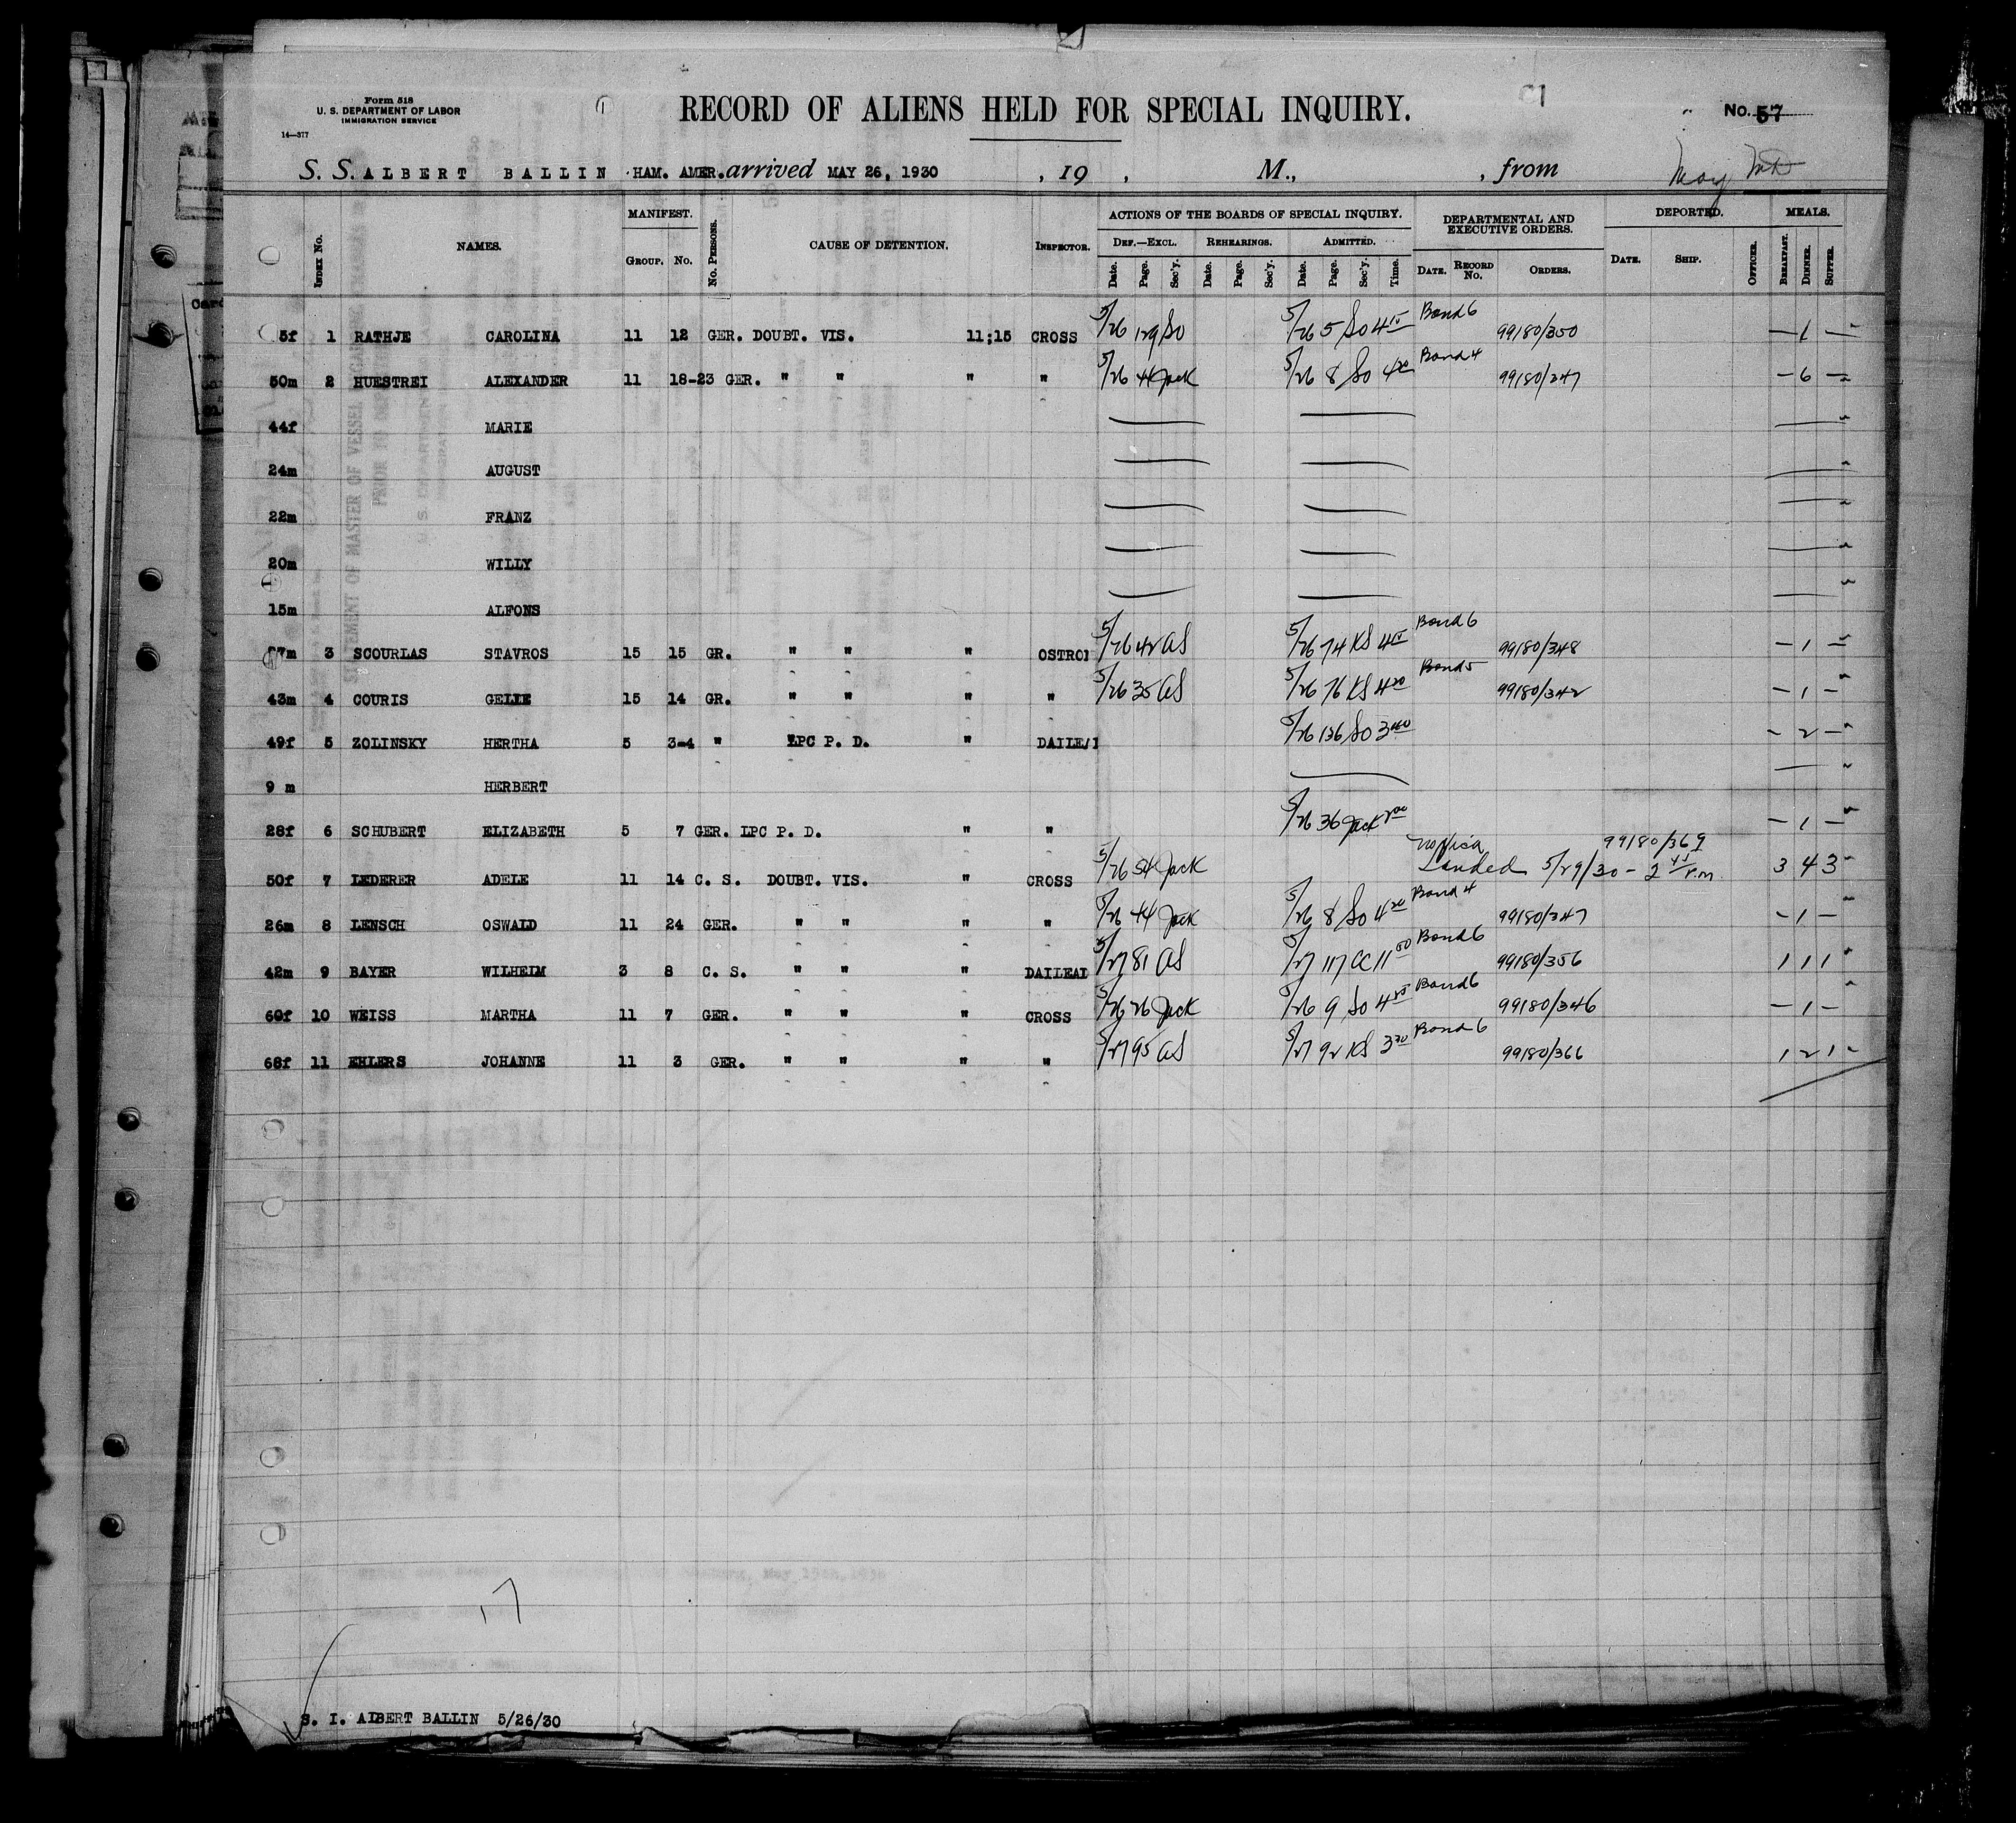 Form 518
U. S. DEPARTMENT OF LABOR
IMMIGRATION SERVICE
14—377
RECORD OF ALIENS HELD FOR SPECIAL INQUIRY.
No. 57
S. S. ALBERT BALLIN HAM. AMER. arrived MAY 26, 1930 , 19 , M., , from
INDEX No. NAMES. MANIFEST. GROUP. No. No. PERSONS. CAUSE OF DETENTION. INSPECTOR. ACTIONS OF THE BOARDS OF SPECIAL INQUIRY. DEF.—EXCL. REHEARINGS. ADMITTED. DEPARTMENTAL AND EXECUTIVE ORDERS. DEPORTED. MEALS.
Date. Page. Sec'y. Date. Page. Sec'y. Date. Page. Sec'y. Time. DATE. RECORD No. ORDERS. DATE. SHIP. OFFICER. BREAKFAST. DINNER. SUPPER.
5f 1 RATHJE CAROLINA 11 12 GER. DOUBT. VIS. 11:15 CROSS 5/26 129 So 5/26 5 So 4 15 Bond 6 99180/350 — 1 —
50m 2 HUESTREI ALEXANDER 11 18-23 GER. " " " " 5/26 44 Jack 5/26 8 So 4 20 Bond 4 99180/347 — 6 —
44f MARIE
24m AUGUST
22m FRANZ
20m WILLY
15m ALFONS
7m 3 SCOURLAS STAVROS 15 15 GR. " " " OSTRO 5/26 42 AS 5/26 74 KS 4 15 Bond 6 99180/348 — 1 —
43m 4 COURIS GELLE 15 14 GR. " " " " 5/26 35 AS 5/26 76 KS 4 20 Bond 5 99180/342 — 1 —
49f 5 ZOLINSKY HERTHA 5 3-4 " LPC P. D. " DAILEA 5/26 136 So 3 40 — 2 —
9 m HERBERT
28f 6 SCHUBERT ELIZABETH 5 7 GER. LPC P. D. " " 5/26 36 Jack 2 00 — 1 —
50f 7 LEDERER ADELE 11 14 C. S. DOUBT. VIS. " CROSS 5/26 54 Jack no visa 99180/369 Landed 5/29/30 - 2 45 P.m. 3 4 3
26m 8 LENSCH OSWALD 11 24 GER. " " " " 5/26 44 Jack 5/26 8 So 4 20 Bond 4 99180/347 — 1 —
42m 9 BAYER WILHEIM 3 8 C. S. " " " DAILEAD 5/27 81 AS 5/27 117 CC 11 00 Bond 6 99180/356 1 1 1
60f 10 WEISS MARTHA 11 7 GER. " " " CROSS 5/26 26 Jack 5/26 9 So 4 25 Bond 6 99180/346 — 1 —
68f 11 EHLERS JOHANNE 11 3 GER. " " " " 5/27 95 AS 5/27 92 KS 3 30 Bond 6 99180/366 1 2 1
17
S. I. ALBERT BALLIN 5/26/30